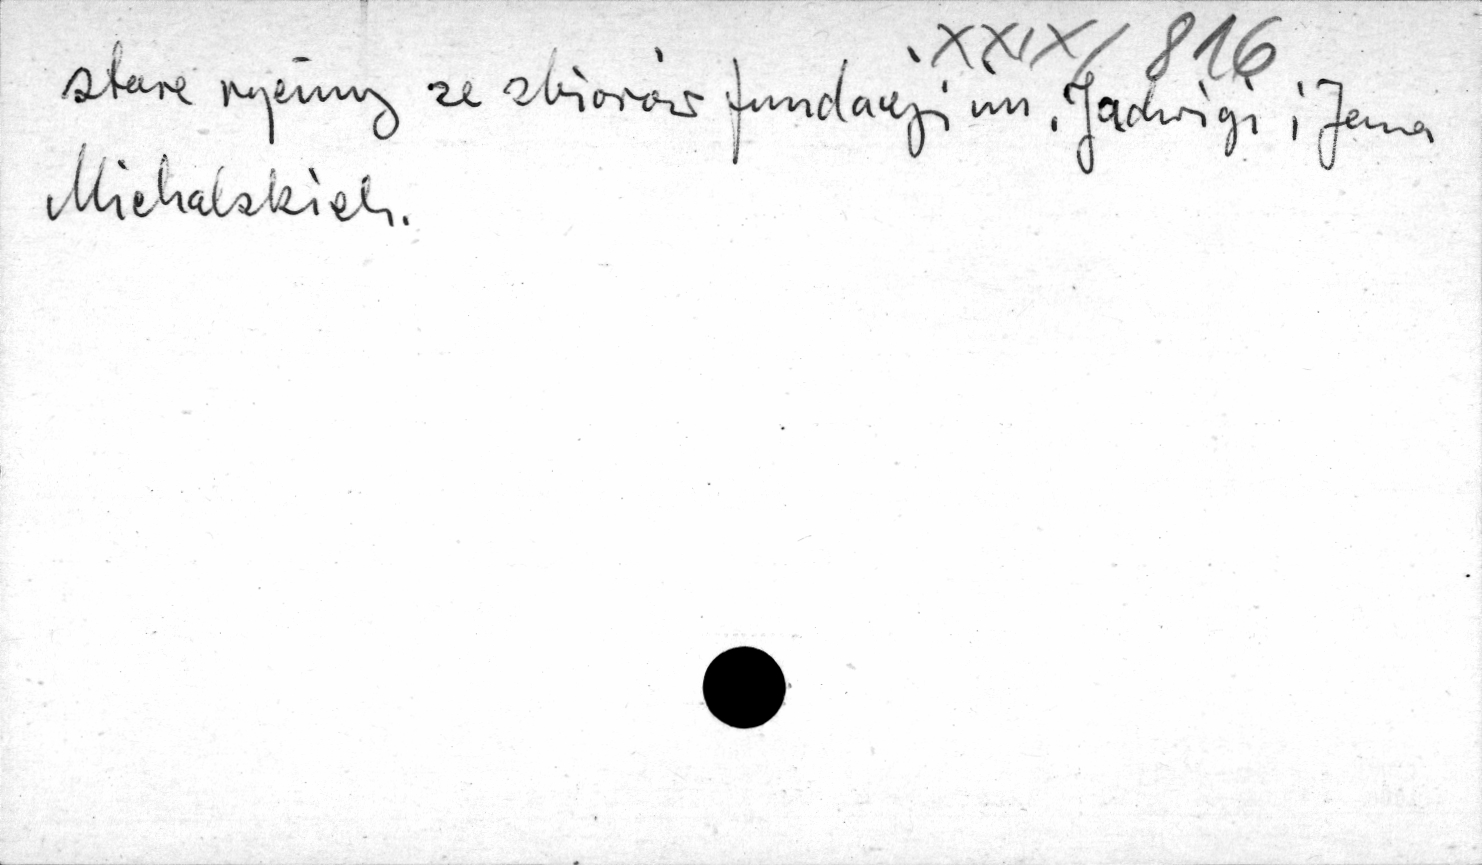 XXIX/816
stare ryciny ze zbiorów fundacji im. Jadwigi i Jana
Michalskich.